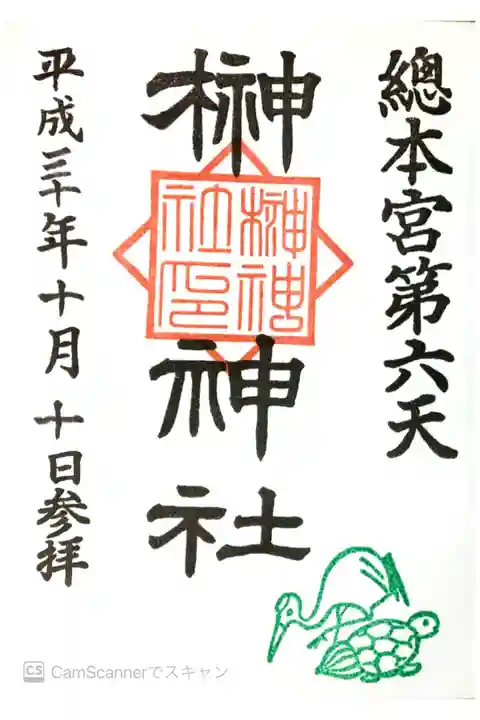 總本宮第六天
榊神社
榊神
社印
平成三十年十月十日参拝
CS CamScannerでスキャン